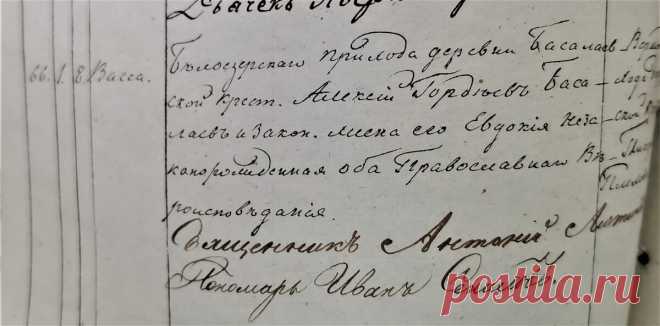 66. 1. 8. Васса.
Бѣлозерскаго прихода деревни Басалаев
ской крест. Алексій Гордіевъ Баса-
лаевъ и закон. жена его Евдокія Неза-
конорожденная оба Православнаго Вѣ-
роисповѣданія.
Священникъ Антоній
Пономарь Иванъ
postila.ru